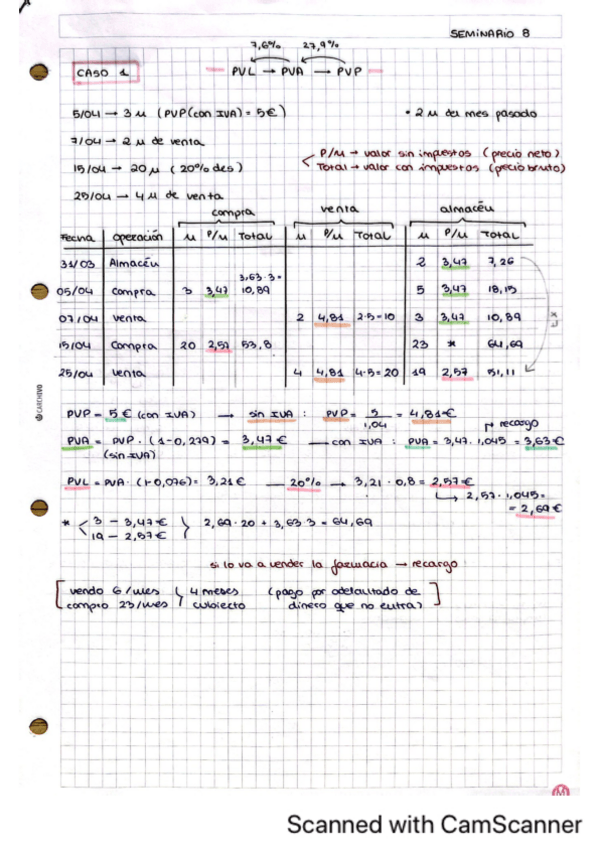 SEMINARIO 8
7,6% 27,9%
CASO 1
PVL → PVA → PVP
5/04 → 3 u (PVP(con IVA) = 5€)
• 2 u del mes pasado
7/04 → 2 u de venta
P/u → valor sin impuestos (precio neto)
15/04 → 20 u (20% des)
Total → valor con impuestos (precio bruto)
25/04 → 4 u de venta
compra venta almacén
Fecha operación u P/u Total u P/u Total u P/u Total
31/03 Almacén 2 3,47 7,26
3,63·3=
05/04 compra 3 3,47 10,89 5 3,47 18,15
07/04 venta 2 4,81 2·5=10 3 3,47 10,89
15/04 compra 20 2,57 53,8 23 * 64,69
25/04 venta 4 4,81 4·5=20 19 2,57 51,11
CARCHIVO
PVP = 5€ (con IVA) → sin IVA : PVP = 5/1,04 = 4,81€
↱ recargo
PVA = PVP · (1-0,279) = 3,47€ — con IVA : PVA = 3,47 · 1,045 = 3,63€
(sin IVA)
PVL = PVA · (1-0,076) = 3,21€ — 20% → 3,21 · 0,8 = 2,57€
↳ 2,57 · 1,045 =
= 2,69€
* 3 - 3,47€
19 - 2,57€ } 2,69 · 20 + 3,63·3 = 64,69
si lo va a vender la farmacia → recargo
[ vendo 6/mes } 4 meses (pago por adelantado de
compro 23/mes cubierto dinero que no entra) ]
Scanned with CamScanner